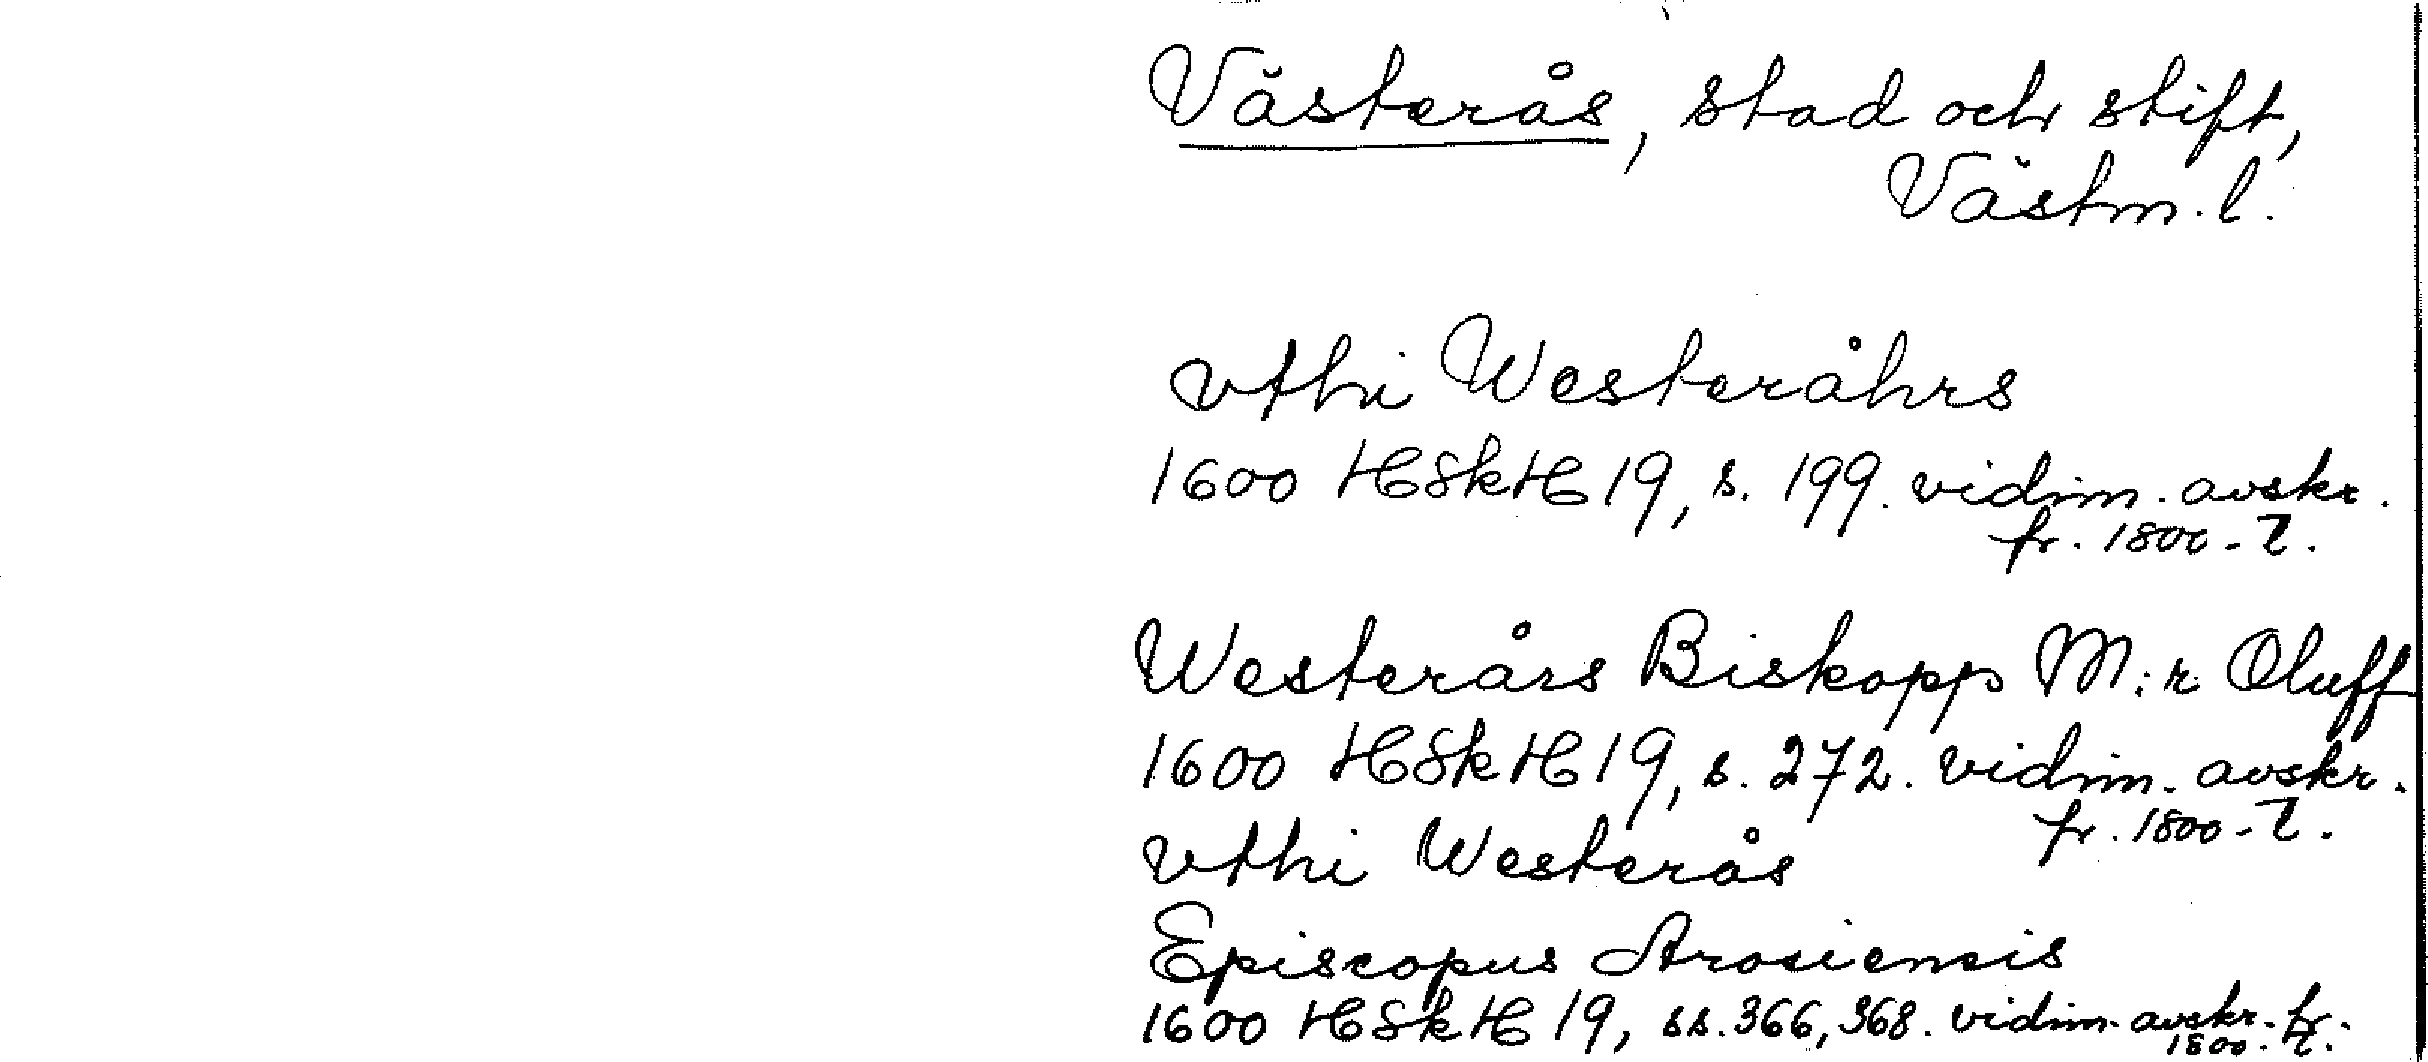 Västerås, stad och stift,
Västm. l.
vthi Westeråhrs
1600 HSkH 19, s. 199. vidim. avskr.
fr. 1800-t.
Westerårs Biskopp M:r Oluff
1600 HSkH 19, s. 272. vidim. avskr.
fr. 1800-t.
vthi Westerås
Episcopus Arosiensis
1600 HSkH 19, ss. 366, 368. vidim. avskr. fr.
1800-t.